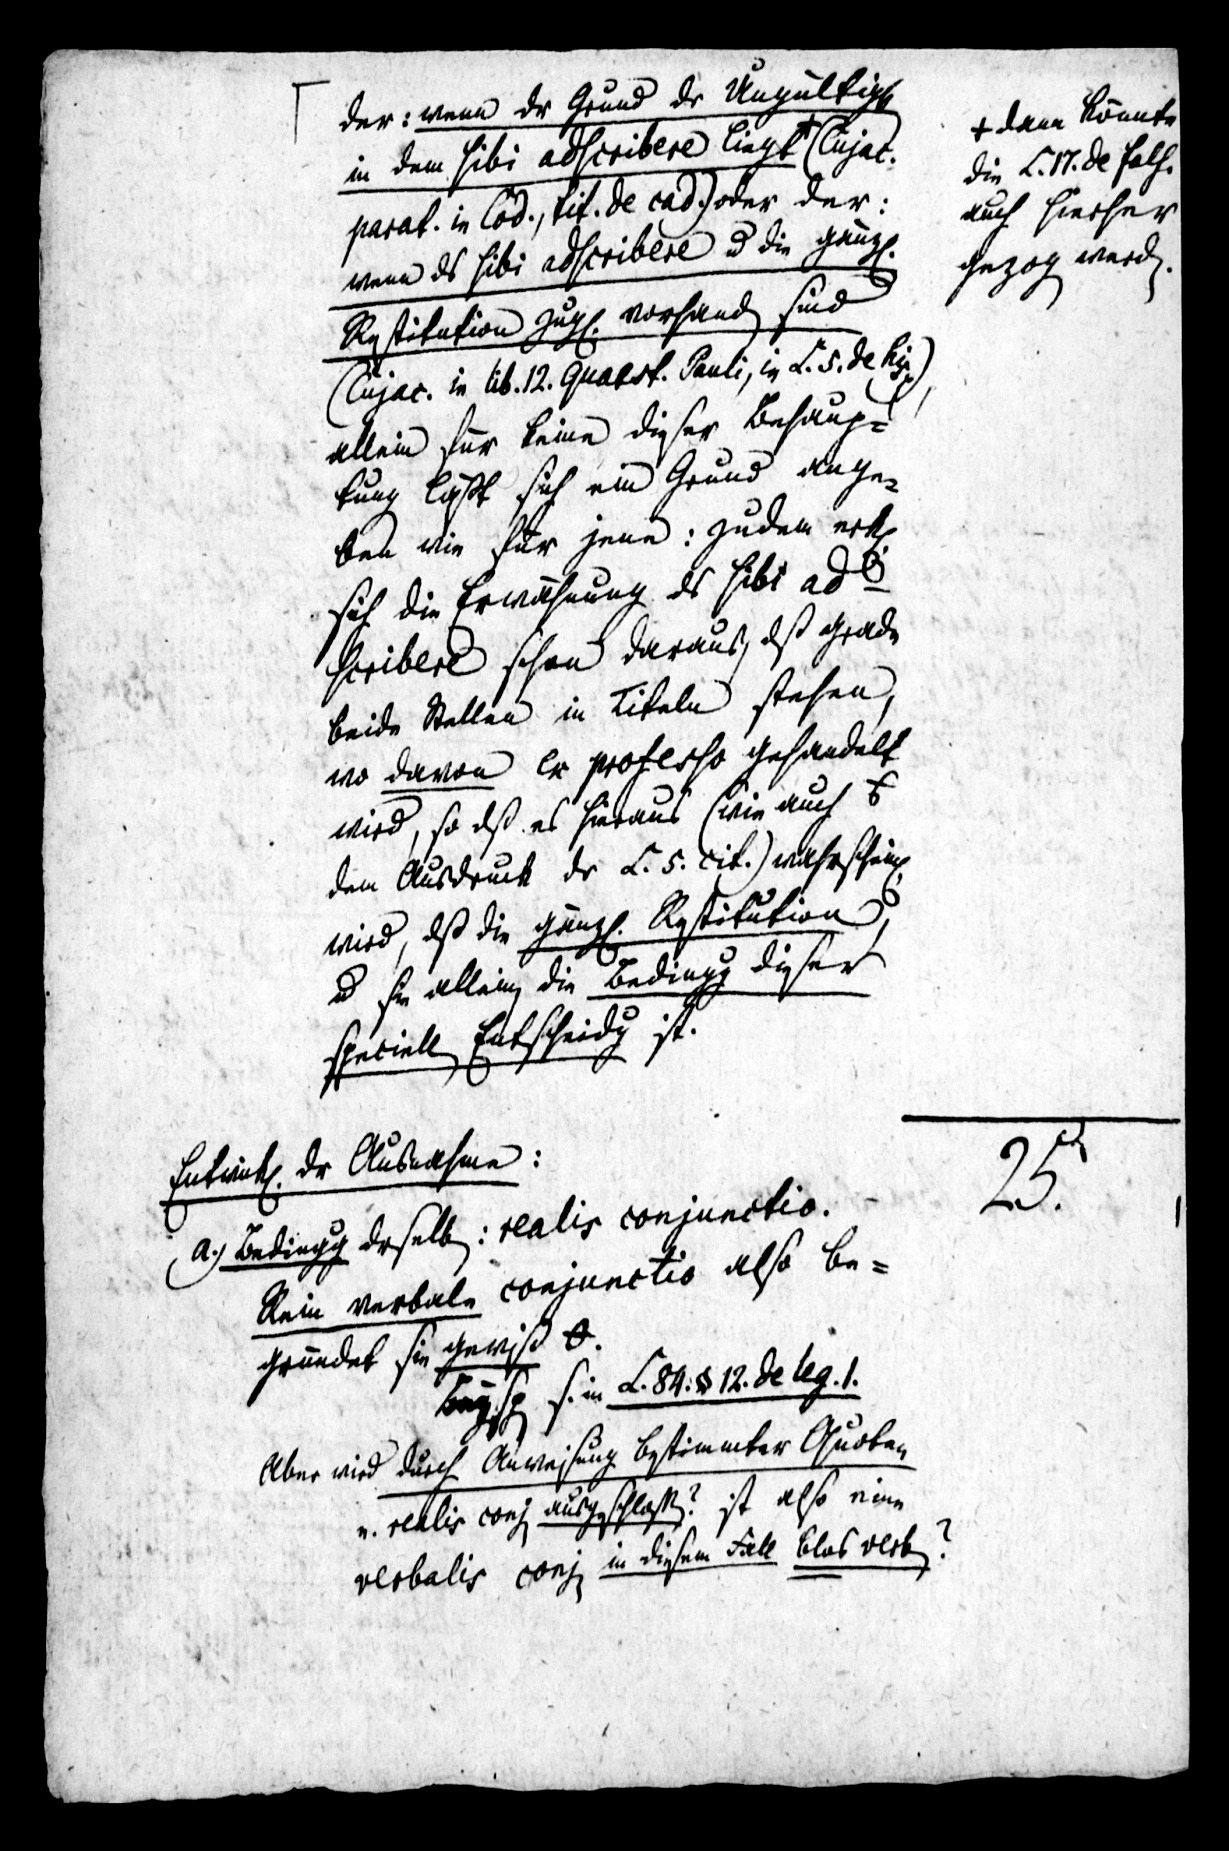 der: wenn dr Grund dr Ungültigk
in dem sibi adscribere liegt + (Cujac.
parat. in Cod., tit. de cad.) oder der:
wenn ds sibi adscribere u die gänzl.
Restitution zugl. vorhand sind
(Cujac. in lib. 12. Quaest. Pauli, in L. 5. de his),
allein für keine dieser Behaup=
tung läßt sich ein Grund ange=
ben wie für jene: zudem erkl
sich die Erwähnung ds sibi ad
scribere schon daraus, dß grade
beide Stellen in Titeln stehen,
wo davon ex professo gehandelt
wird, so dß es hieraus (wie auch
dem Ausdruck dr L. 5. cit.) wahrscheinl
wird, dß die gänzl. Restitution,
u sie allein die Bedingg dieser
speciell Entscheidg ist.
+ dann könnte
die L. 17. de fals.
auch hierher
gezog werd.
25.
Entwickl. dr Ausnahme:
a.) Bedingg drselb: realis conjunctio.
Rein verbale conjunctio also be=
gründet sie gewiß 0.
s. in L. 84. § 12. de leg. 1.
Aber wird durch Anweisung bestimmter Quoten
e. realis conj ausgeschloss? ist also eine
verbalis conj in diesem Fall blos verb?